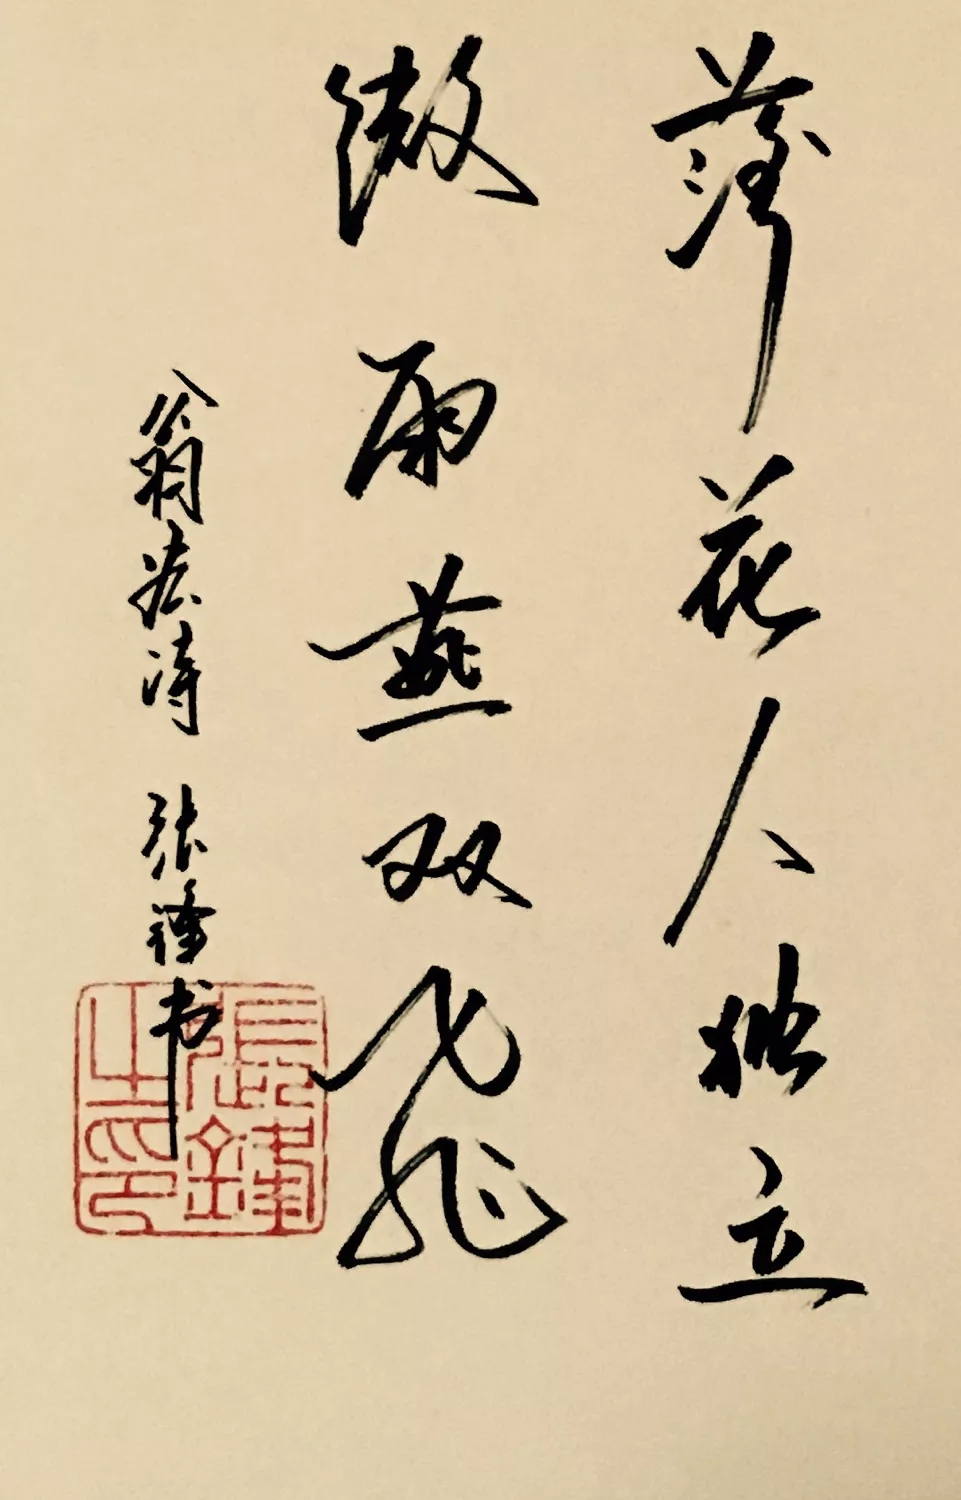 落花人独立
微雨燕双飞
翁宏诗 张锋书
張鋒之印